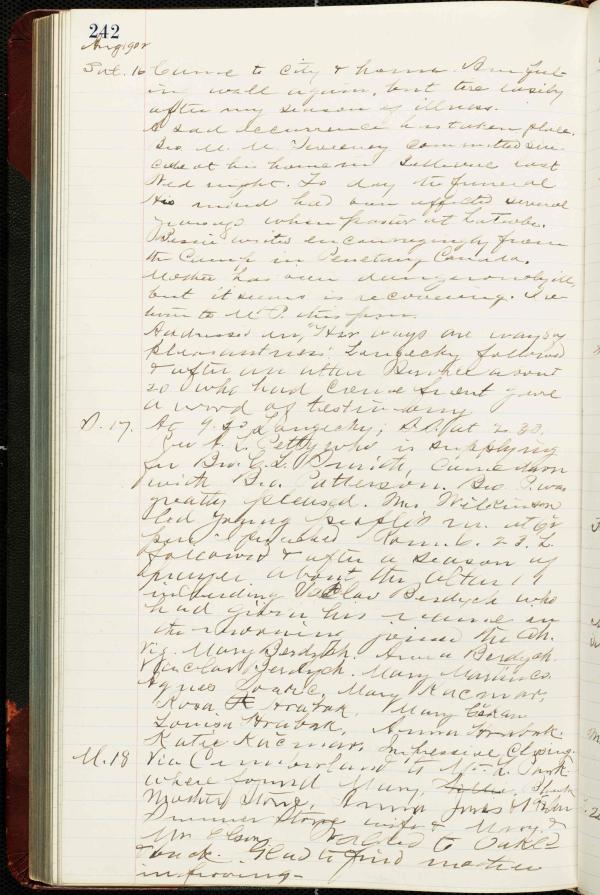 242
Aug 1902
Sat. 16 Came to city & home. Am feel-
ing well again, but tire easily
after my season of illness.
A sad occurrence has taken place.
Bro. M. M. Sweeney committed sui-
cide at his home in Bellevue last
Wed night. To day the funeral
His mind had been affected several
years ago when pastor at Latrobe.
Bessie writes encouragingly from
the Camp in Penetang Canada.
Mother has been dangerously ill,
but it seems is recovering.
to Mt. P. this p.m.
Addressed m, "Her ways are ways of
pleasantness; Langecky followed
& after an altar service about
20 who had come front gave
a word of testimony
S. 17. At 9.30 Langecky; S.S. at 2.30.
Rev A. L. Petty who is supplying
for Bro. C. L. Smith, came down
with Bro. Patterson. Bro. P. was
greatly pleased. Mrs. Wilkinson
led young people's m. at
preached Rom. 6. 23. L.
followed & after a season of
prayer about the altar 19
including Vaclav Berdych who
had given his name in
the morning joined the Ch.
viz. Mary Berdych. Anna Berdych.
Vaclav Berdych. Mary
Agnes Mary Kacmar,
Rosa Hrabak. Mary
Louisa Hrabak, Anna Hrabak.
Katie Kacmar, Impressive Closing.
M. 18 Via Cumberland to Mt. L. Park
where found Mary,
Mother Stone, Anna Jones &
Sumner Stone wife & Mary &
Mr. Walked to Oakland
& back. Glad to find mother
improving.